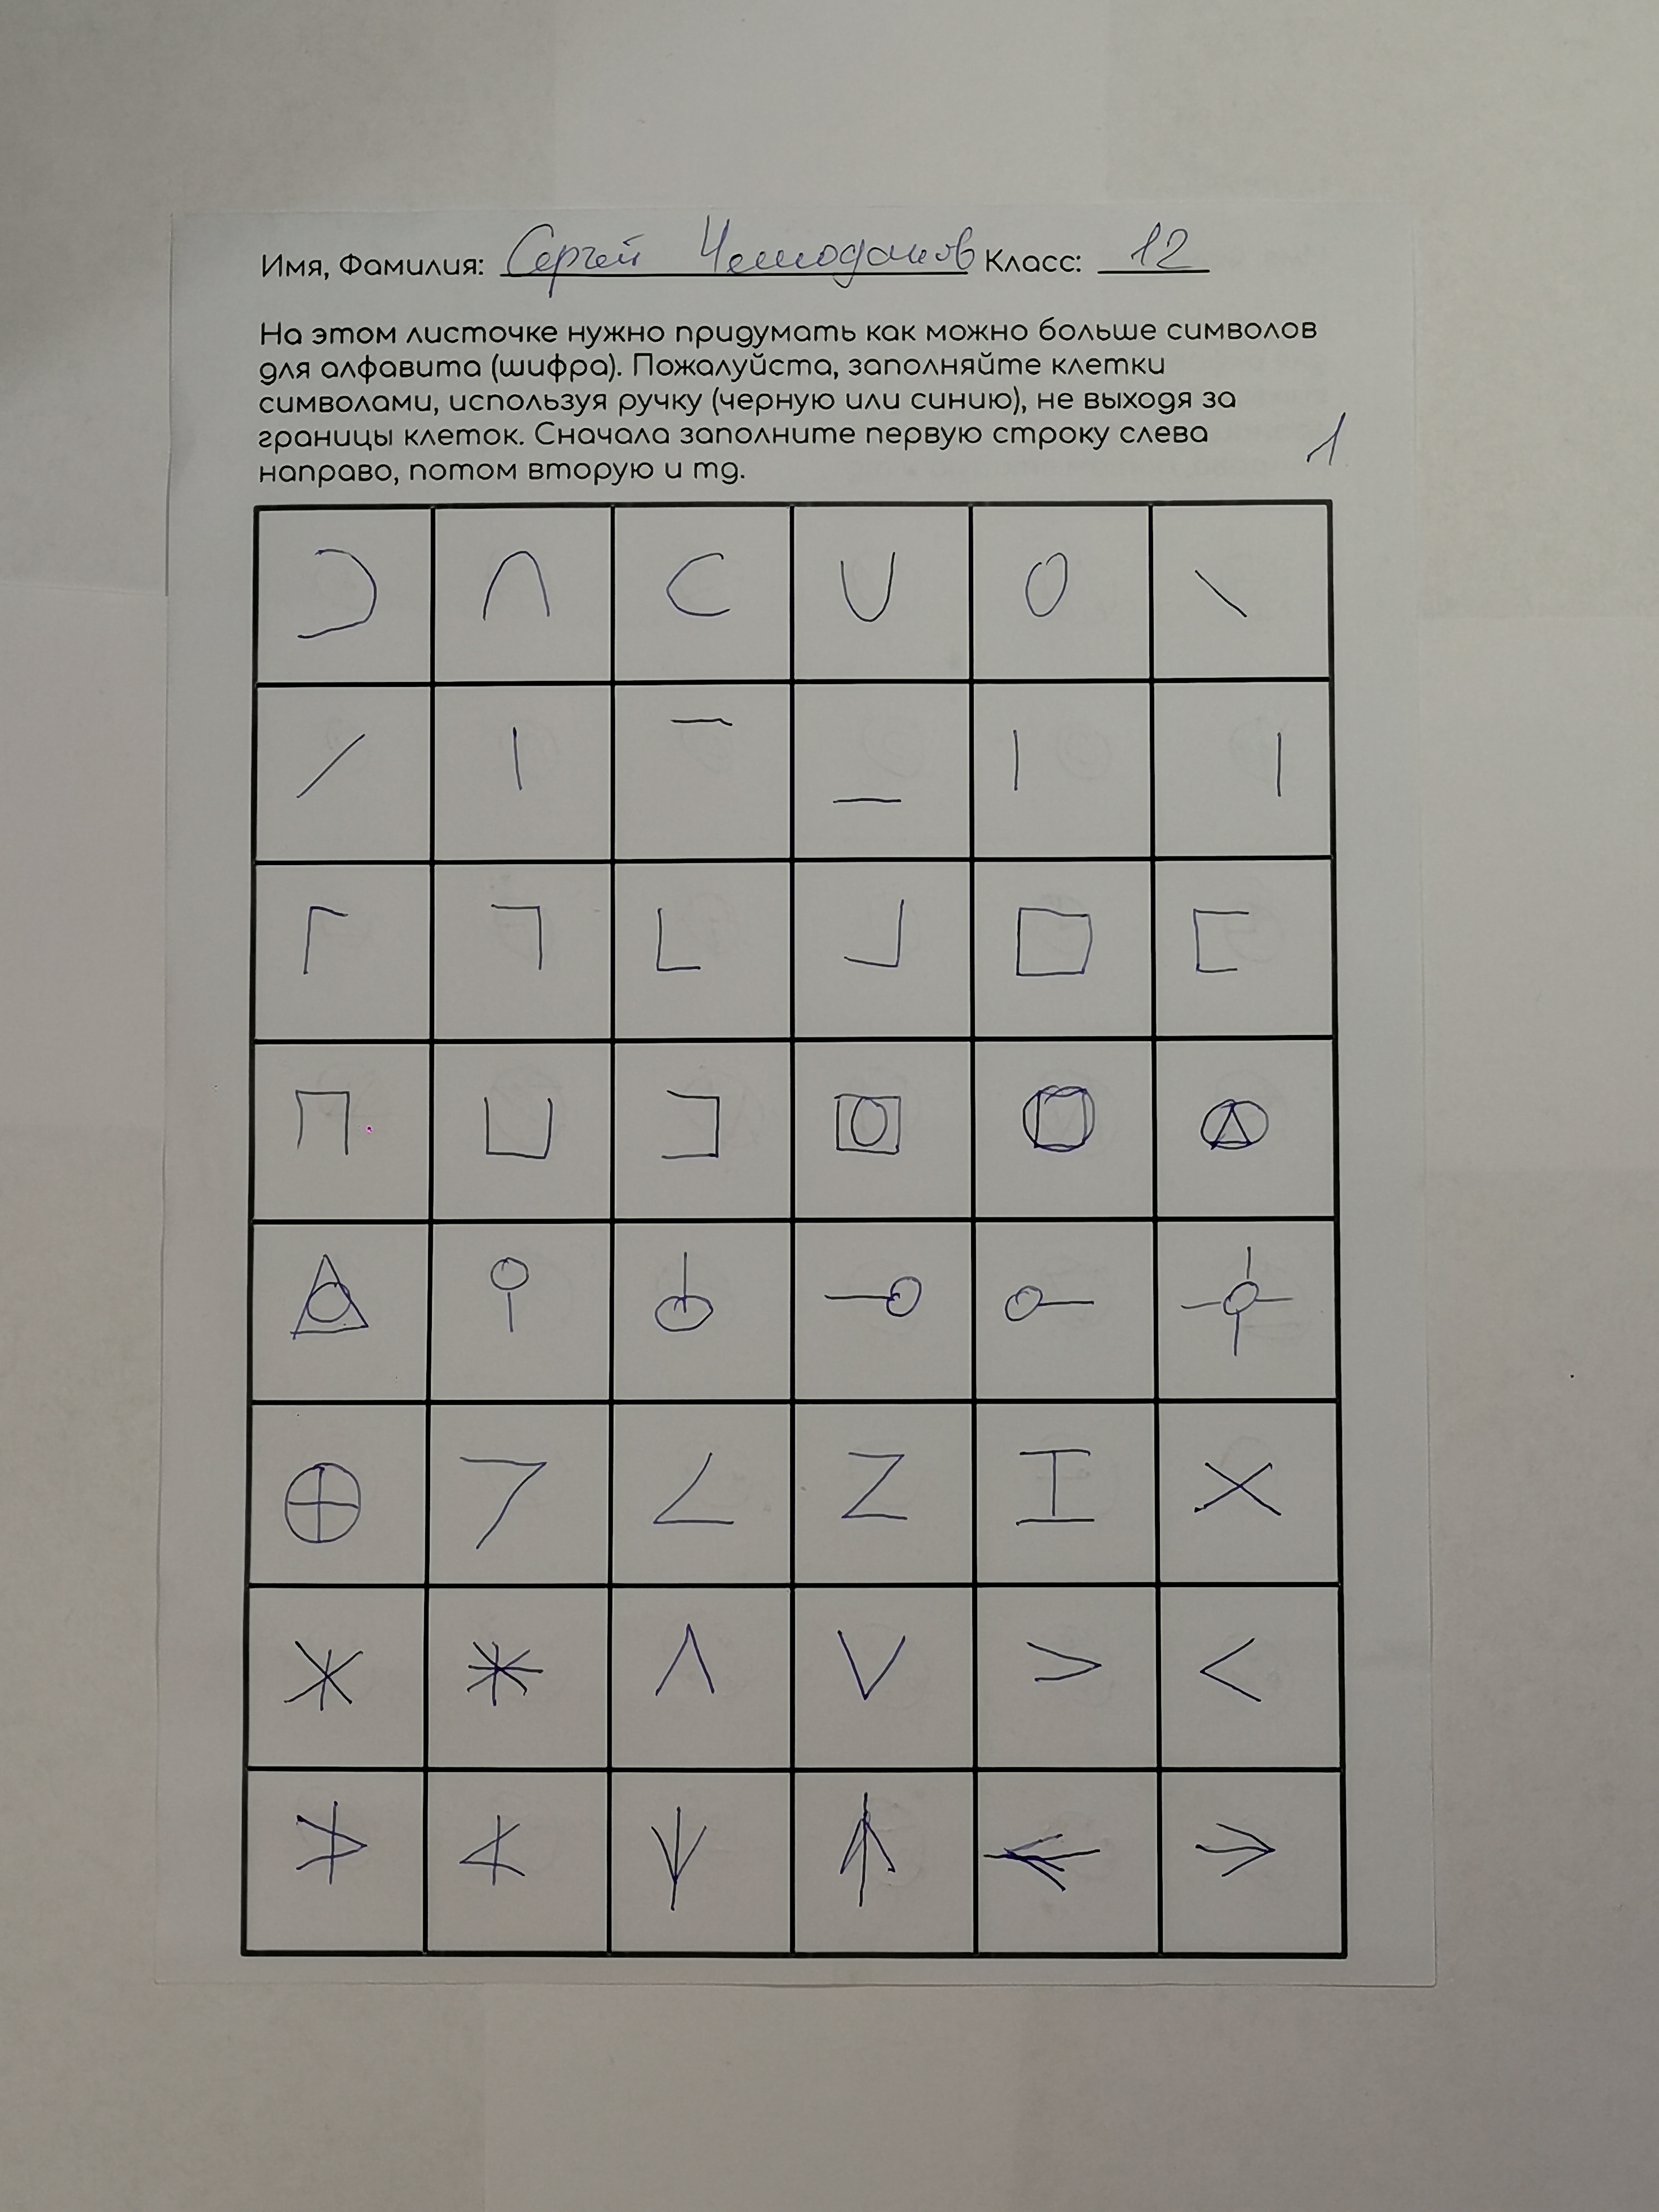 Имя, Фамилия: Сергей Чемоданов Класс: 12
На этом листочке нужно придумать как можно больше символов
для алфавита (шифра). Пожалуйста, заполняйте клетки
символами, используя ручку (черную или синию), не выходя за
границы клеток. Сначала заполните первую строку слева
направо, потом вторую и тд.
1